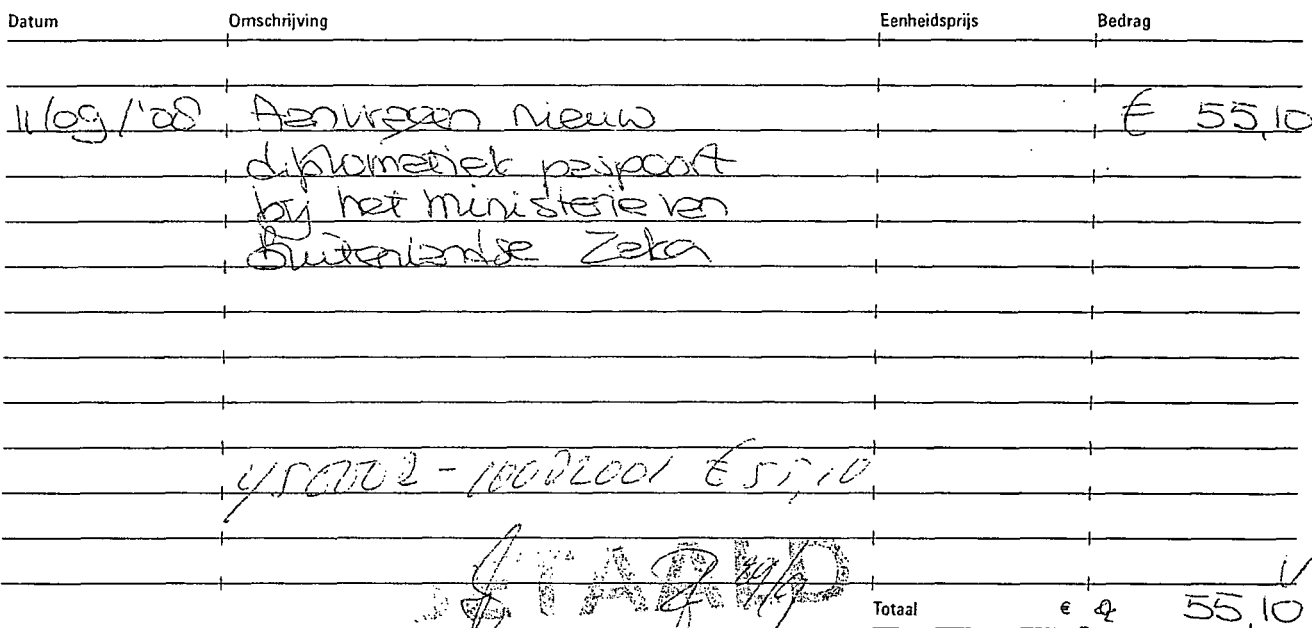 Datum Omschrijving Eenheidsprijs Bedrag
11/09/'08 Aanvragen nieuw € 55,10
diplomatiek paspoort
bij het ministerie van
Buitenlandse Zaken
450002-10002001 € 55,10
BETAALD
Totaal € 55,10